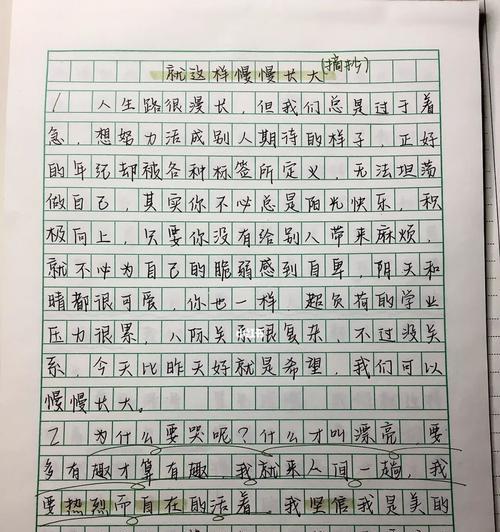 就这样慢慢长大(摘抄)
1 人生路很漫长,但我们总是过于着
急,想努力活成别人期待的样子,正好
的年纪却被各种标签所定义,无法坦荡
做自己,其实你不必总是阳光快乐,积
极向上,只要你没有给别人带来麻烦,
就不必为自己的脆弱感到自卑,阴天和
晴都很可爱,你也一样,超负荷的学业
压力很累,人际关 很复杂,不过没关
系,今天比昨天好就是希望,我们可以
慢慢长大。
2 为什么要哭呢?什么才叫漂亮,要
多有趣才算有趣,我就来人间一趟,我
要热烈而自在的活着,我坚信我是美的